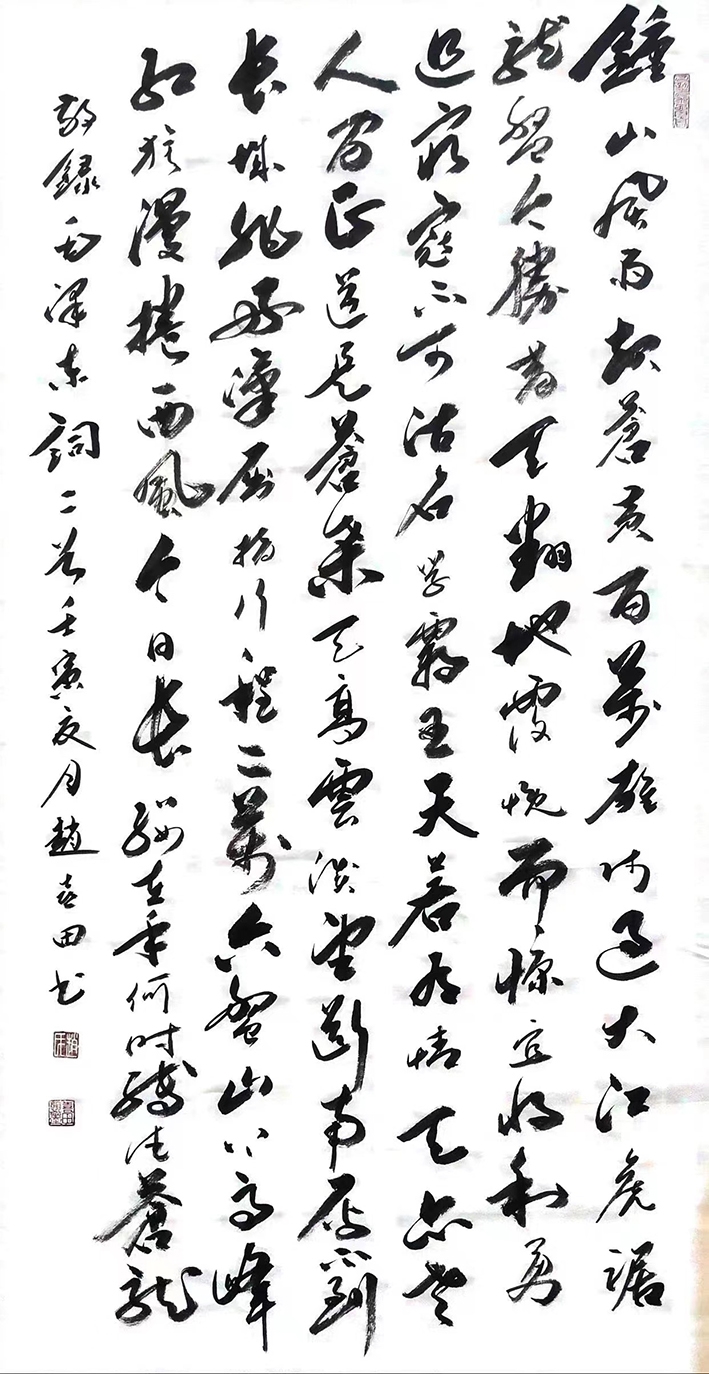 鍾山風雨起蒼黃百萬雄師過大江虎踞
龍盤今勝昔天翻地覆慨而慷宜將剩勇
追窮寇不可沽名學霸王天若有情天亦老
人間正道是蒼桑天高雲淡望斷南雁不到
長城非好漢屈指行程二萬六盤山上高峰
紅旗漫捲西風今日長纓在手何時縛住蒼龍
敬錄毛澤東詞二首壬寅夏月趙喜田書